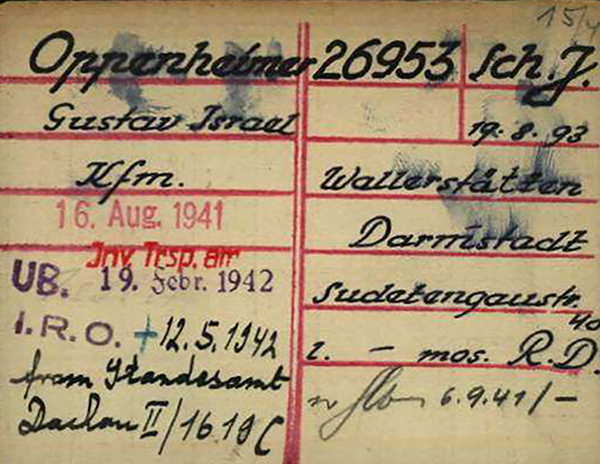 15/4
Oppenheimer 26953 Sch. J.
Gustav Israel
19. 8. 93
Kfm.
Wallerstätten
16. Aug. 1941
Darmstadt
Inv. Trsp. am
UB. 19. Febr. 1942
Sudetengaustr.
40
I.R.O. +12.5.1942
l. - mos. R.D.
from Standesamt
6.9.41/-
Dachau II/1619